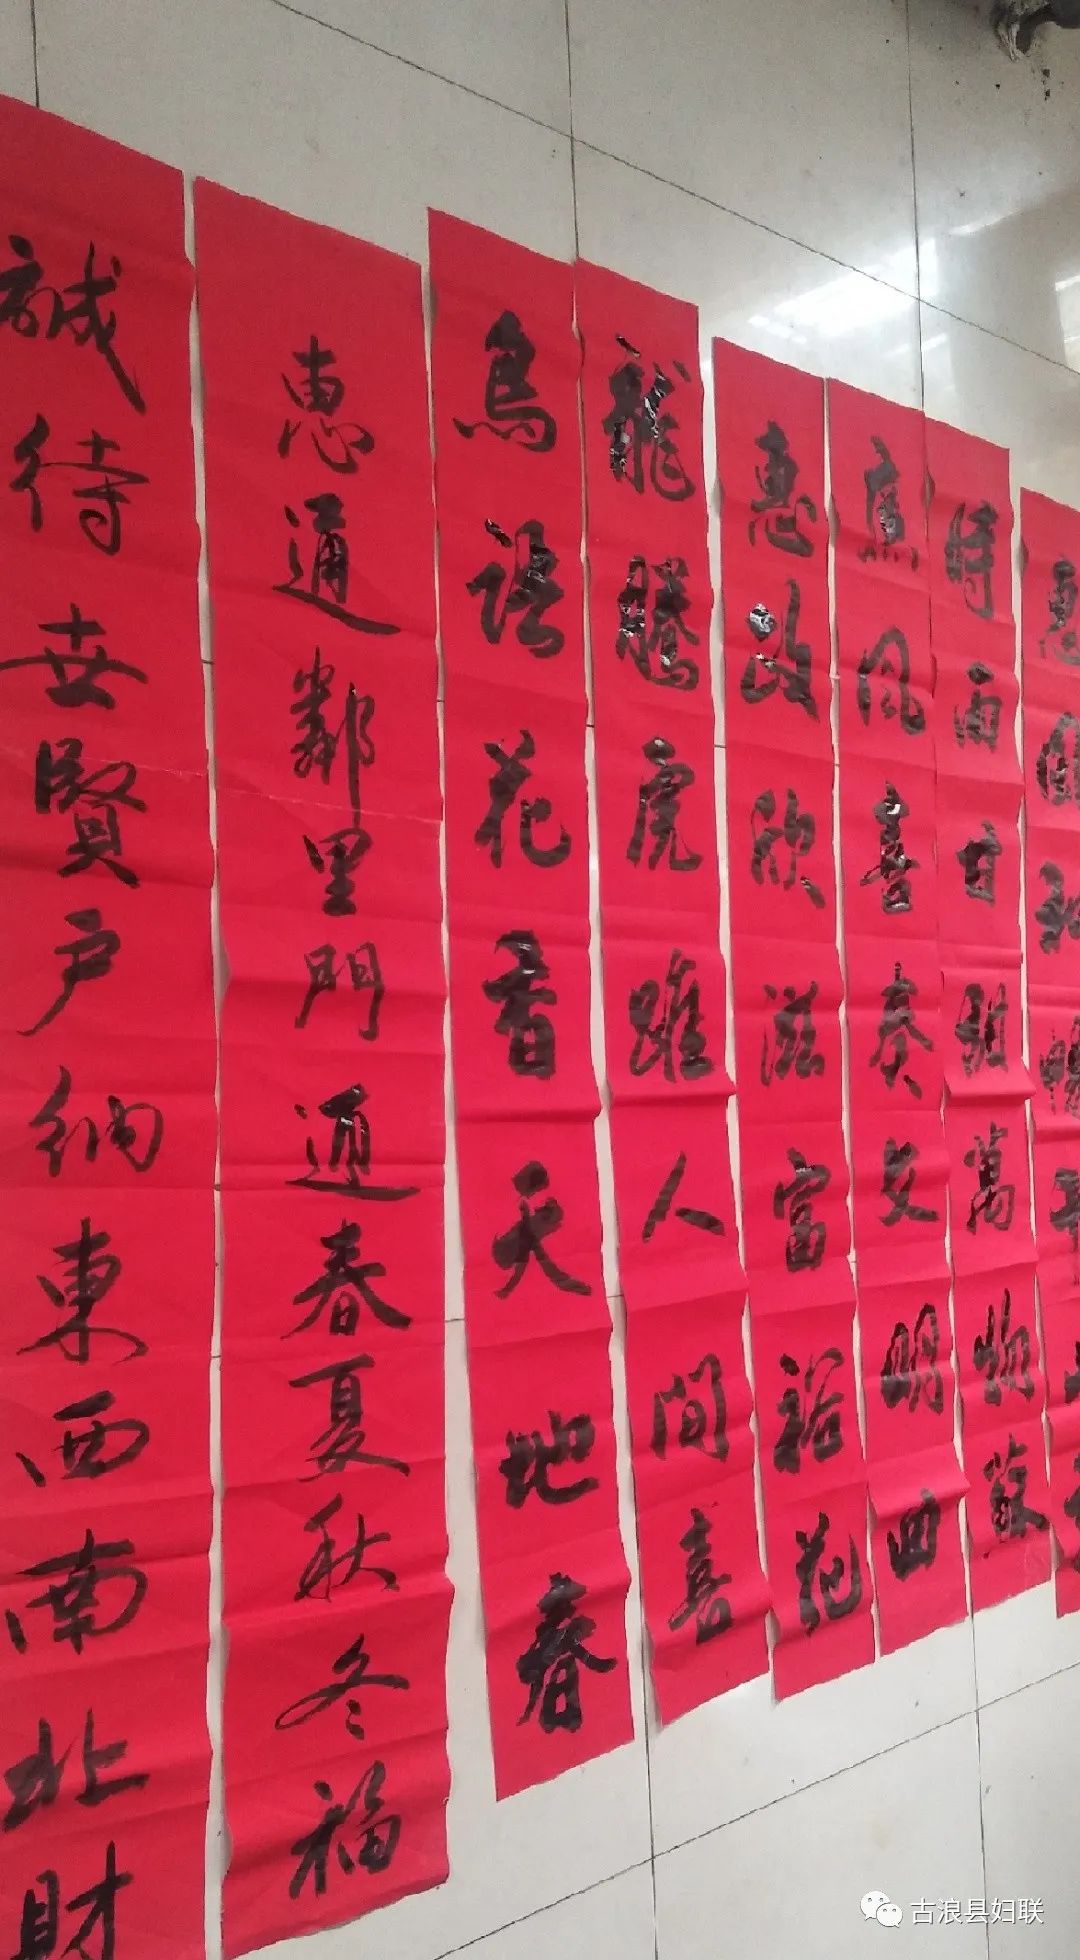 惠和暢
時雨甘甜萬物蘇
風喜奏文明曲
惠政欣滋富裕花
龍騰虎躍人間喜
鳥语花香天地春
惠通鄰里門迎春夏秋冬福
誠待世賢户納東西南北財
古浪县妇联